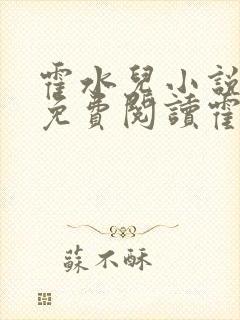 霍水兒小說
免費閱讀霍
蘇不酥